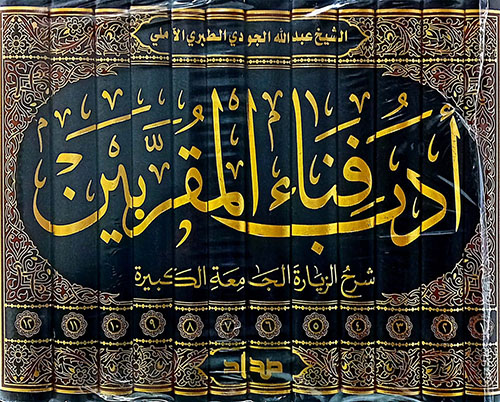 الشيخ عبد الله الجوادي الطبري الآملي
أدب فناء المقربين
شرح الزيارة الجامعة الكبيرة
١ ٢ ٣ ٤ ٥ ٦ ٧ ٨ ٩ ١٠ ١١ ١٢
مداد